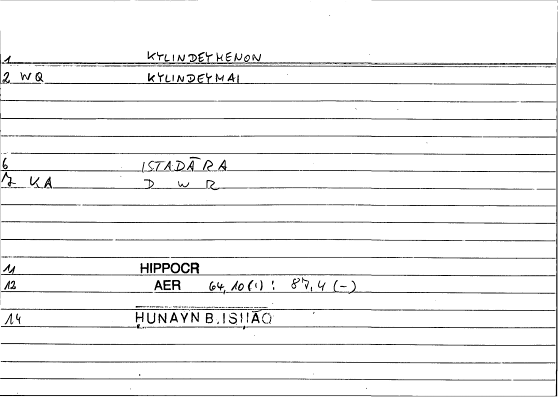 1 KYLINDEYMENON
2 WQ KYLINDEYMAI
6 ISTADĀRA
7 KA D W R
11 HIPPOCR
12 AER 64,10(1) : 87,4 (-)
14 ḤUNAYN B.ISḤĀQ